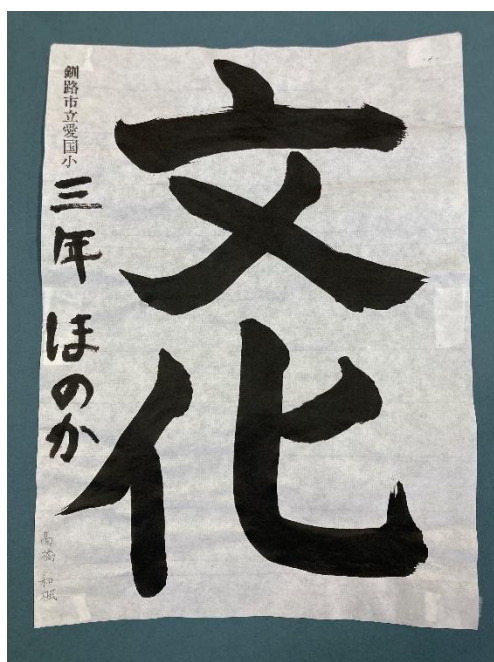 文化
釧路市立愛国小
三年 ほのか